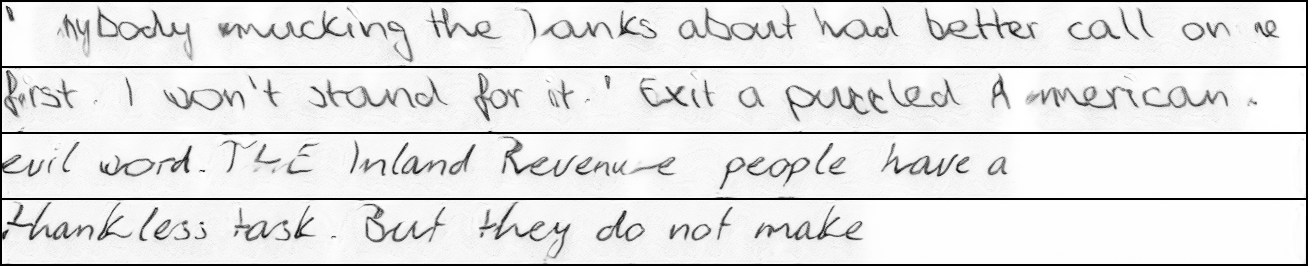 ' nybody mucking the Yanks about had better call on me
first. I won't stand for it.' Exit a puzzled American.
evil word. THE Inland Revenue people have a
thankless task. But they do not make